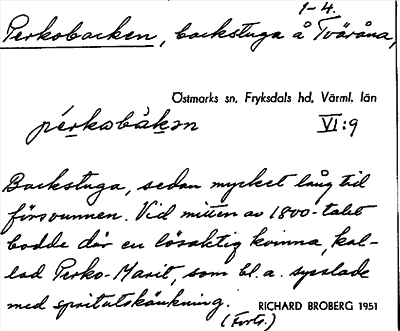 1-4.
Perkobacken, backstuga å Tväråna,
Östmarks sn, Fryksdals hd, Värml. län
pérkobàkən VI:9
Backstuga, sedan mycket lång tid
försvunnen. Vid mitten av 1800-talet
bodde där en lösaktig kvinna, kal-
lad Perko-Marit, som bl.a. sysslade
med spritutskänkning. RICHARD BROBERG 1951
(Forts.)